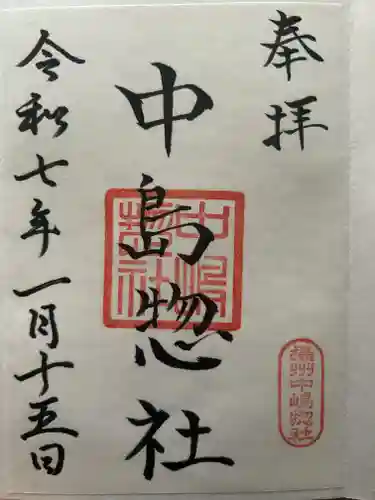 奉拝
摂州中嶋惣社
中島惣社
中嶋惣社
令和七年一月十五日